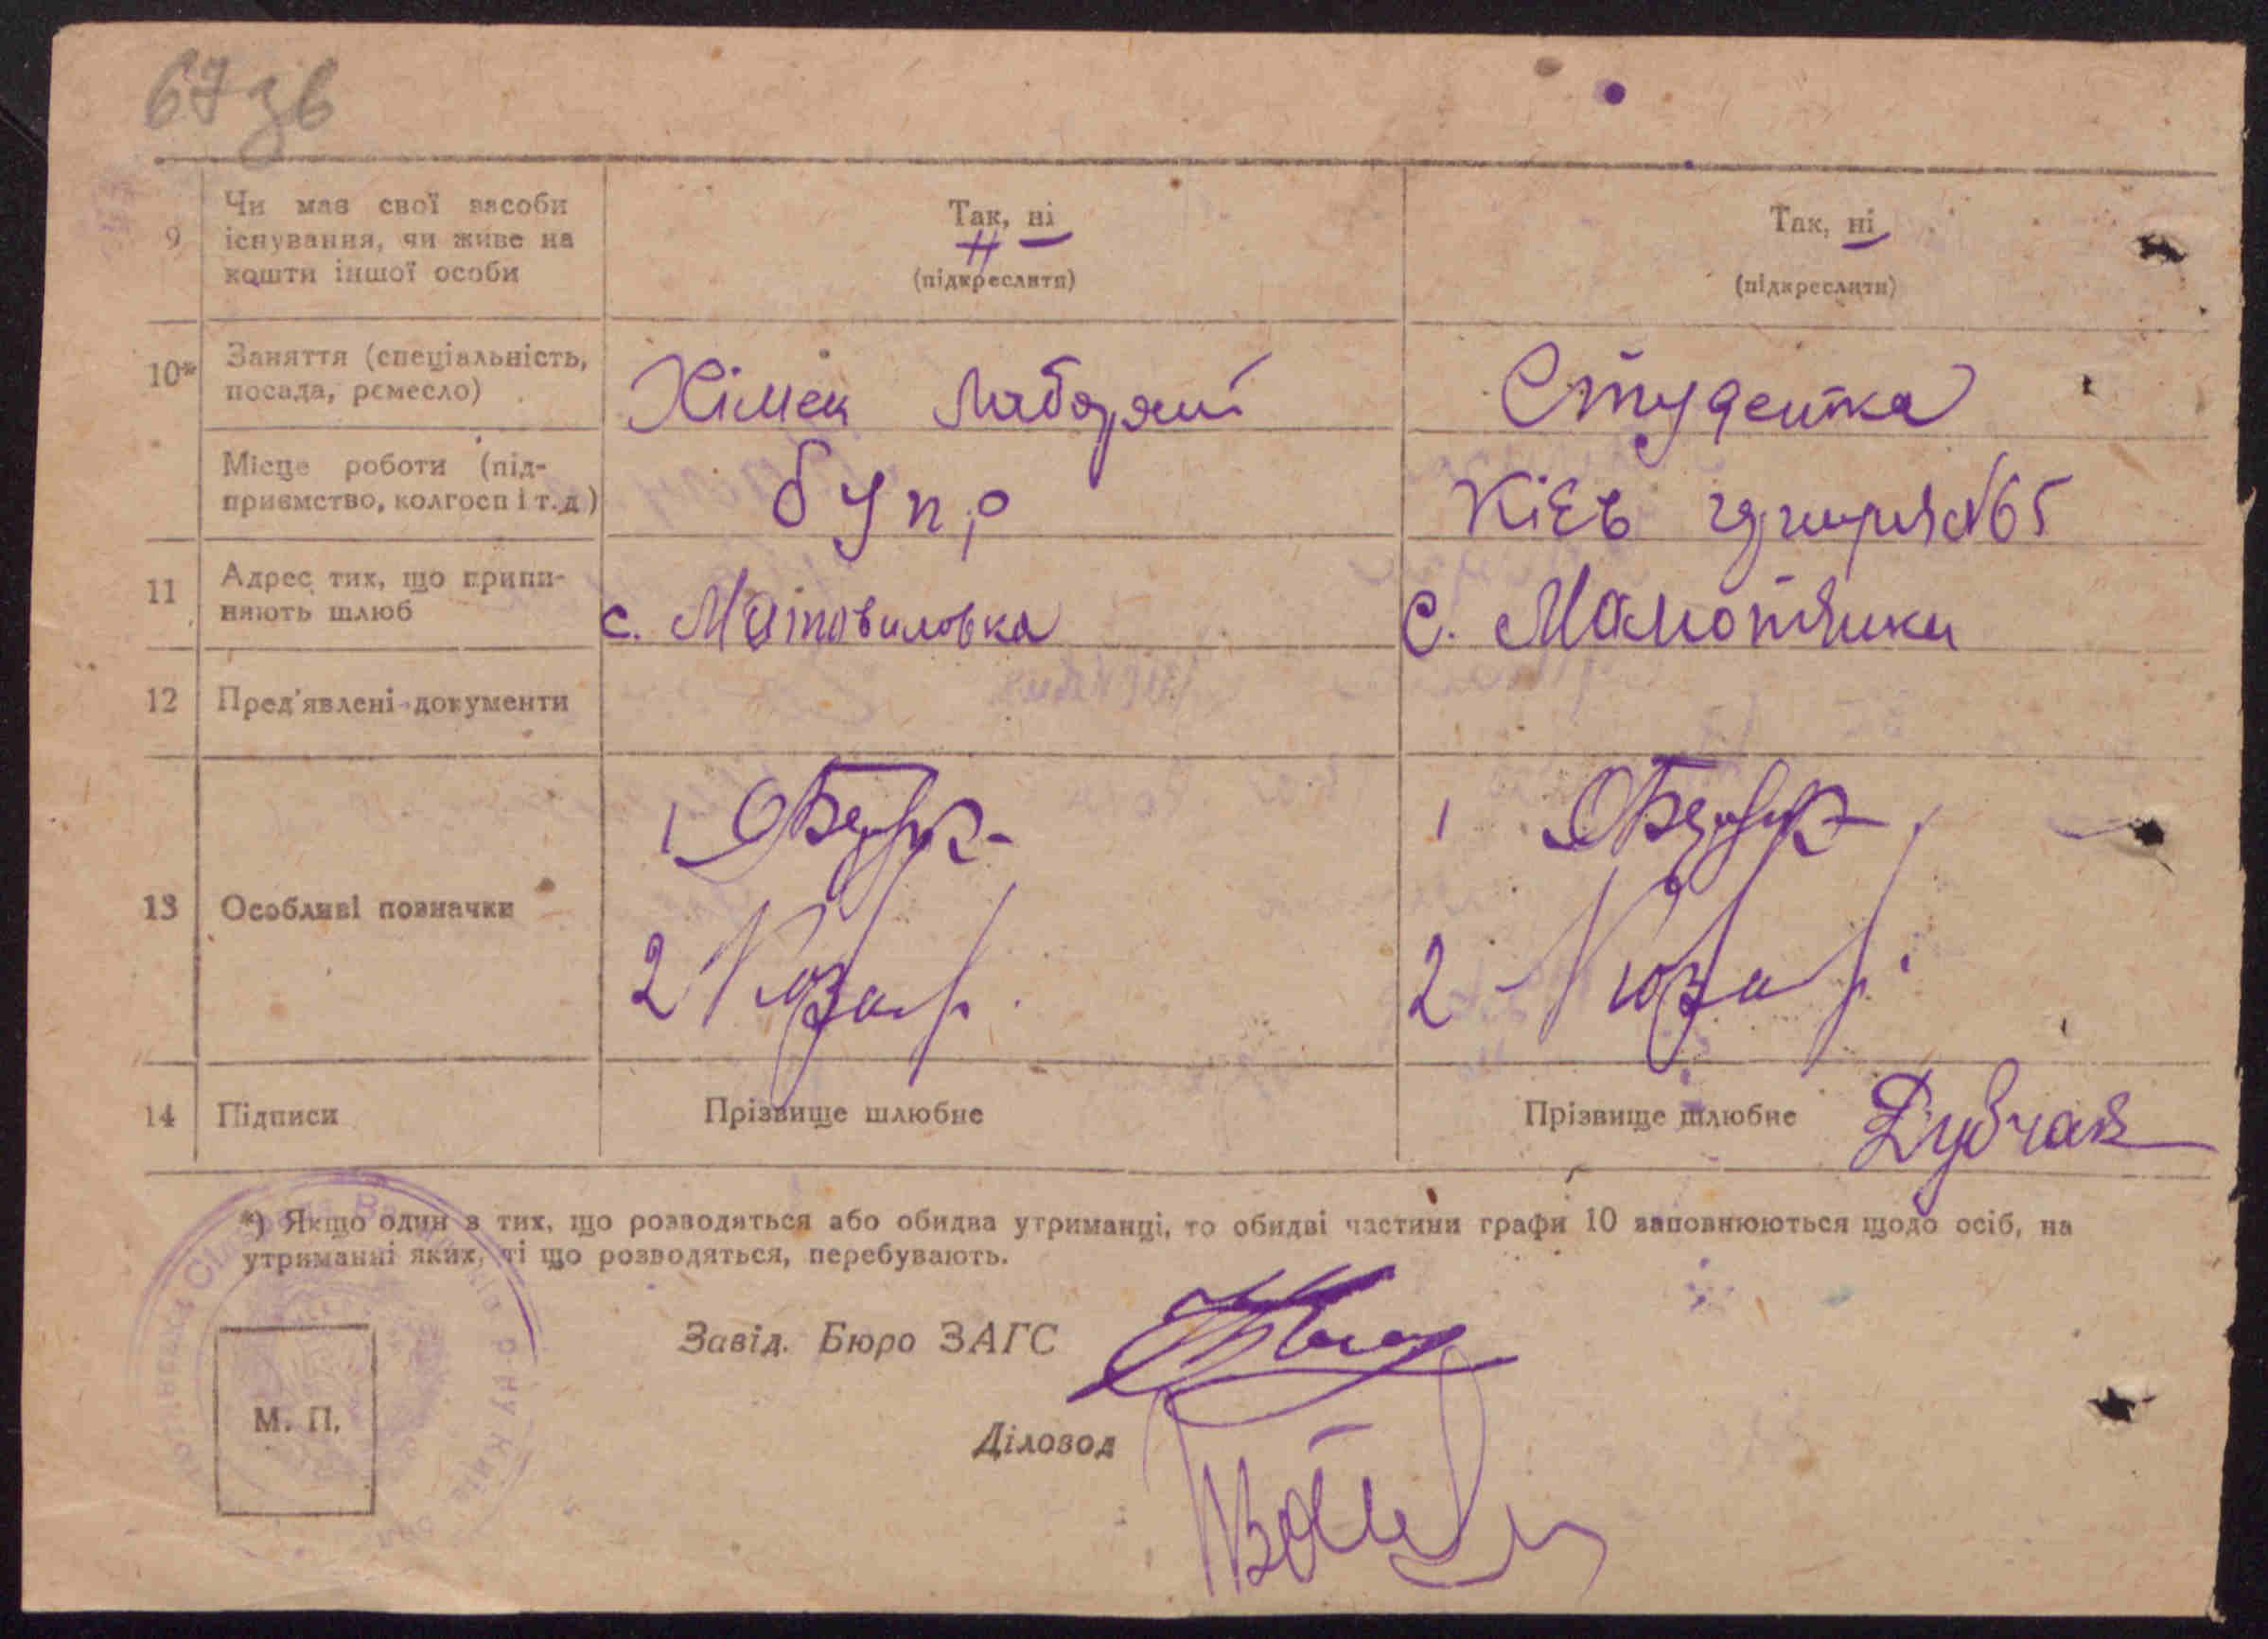 67 зв
9
Чи має свої засоби
існування, чи живе на
кошти іншої особи
Так, ні
(підкреслити)
Так, ні
(підкреслити)
10*
Заняття (спеціальність,
посада, ремесло)
Хімек
Студентка
Місце роботи (під-
приємство, колгосп і т. д.)
бур
Кієв №65
11
Адрес тих, що припи-
няють шлюб
с. Матовиловка
с. Малютянки
12
Пред'явлені документи
13
Особливі позначки
1
2
1
2
14
Підписи
Прізвище шлюбне
Прізвище шлюбне Дубчак
*) Якщо один з тих, що розводяться або обидва утриманці, то обидві частини графи 10 заповнюються щодо осіб, на
утриманні яких, ті що розводяться, перебувають.
Завід. Бюро ЗАГС
Діловод
М. П.